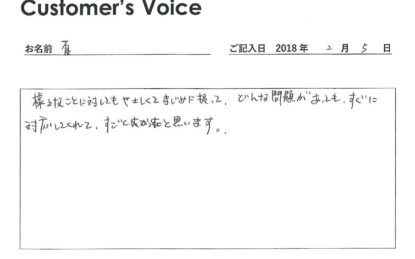 Customer's Voice
お名前 ご記入日 2018年 2月 5日
様々なことに対してもやさしくてまじめに扱って、どんな問題があっても、すぐに
対応してくれて、すごく と思います。